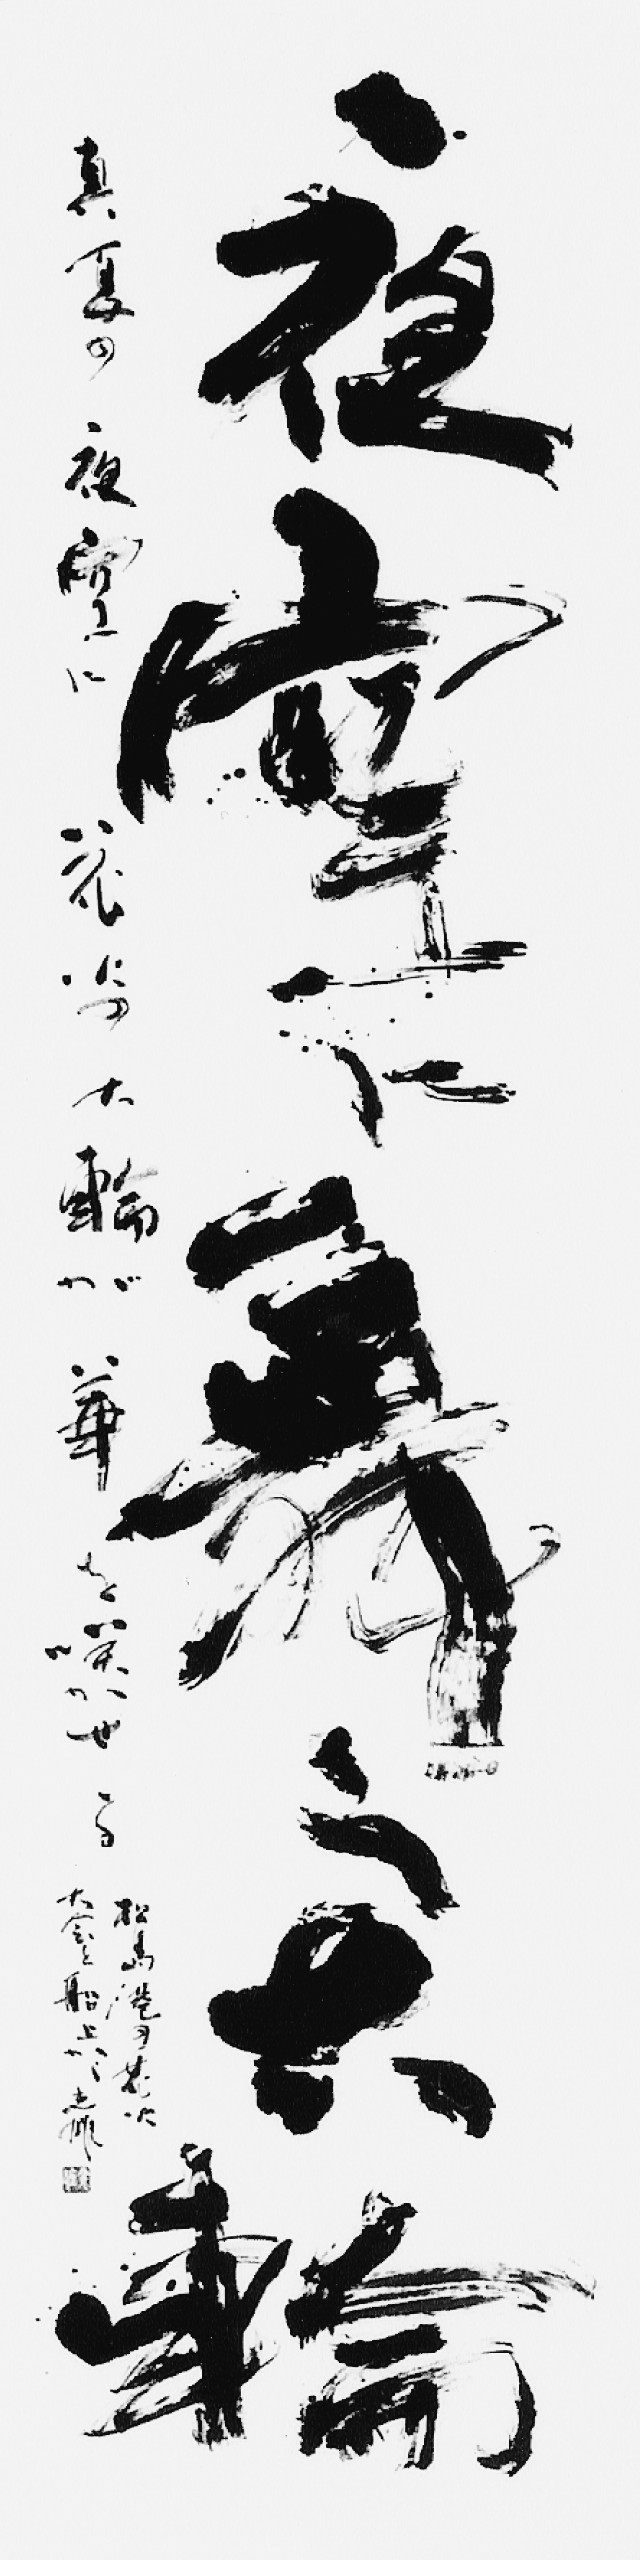 夜空に舞う大輪
真夏の夜空に花火の大輪が華を咲かせる
松島港の花火
大会を船上から